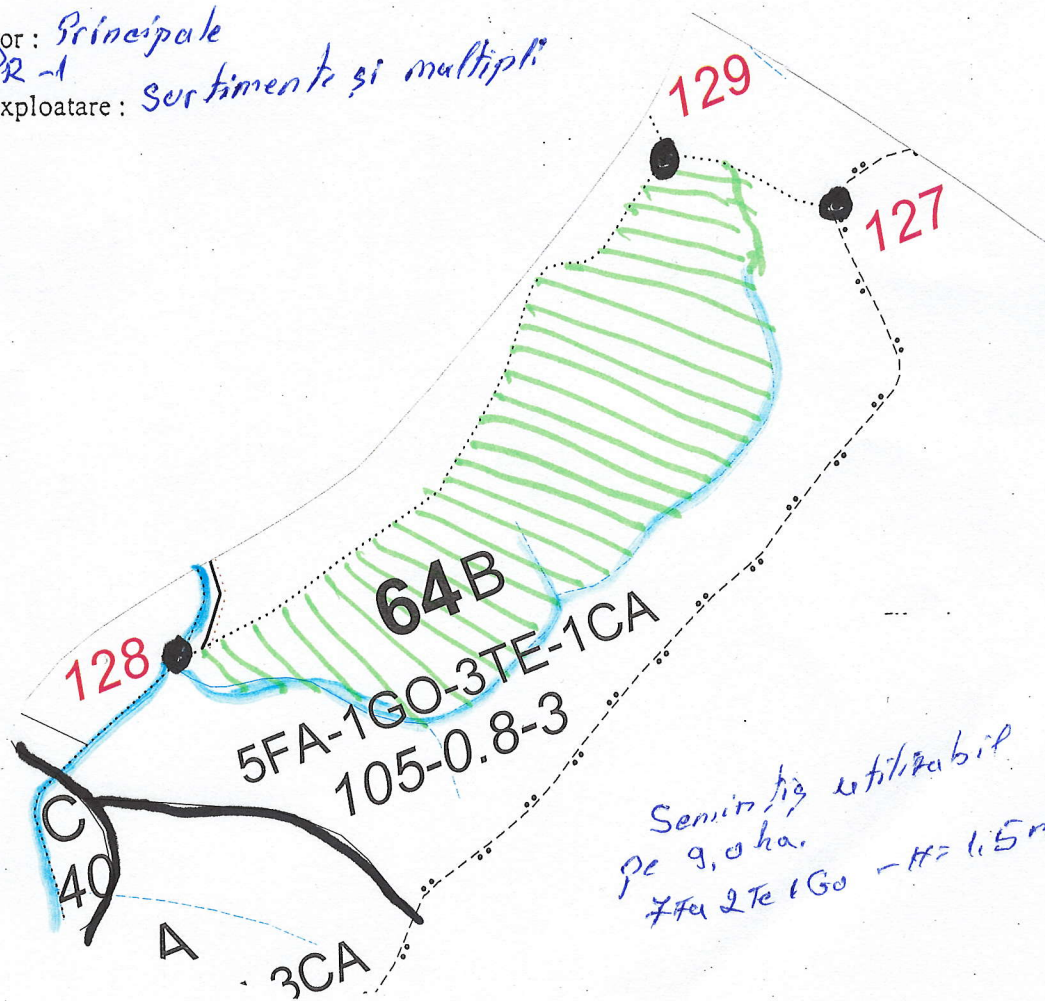 or : Principale
R-1
xploatare : Sortimente și multipli
129
127
128
64B
5FA-1GO-3TE-1CA
105-0.8-3
C
40
A
3CA
Semințiș utilizabil
pe 9,0 ha.
7Fa 2Te 1Go - H= 1,5 m